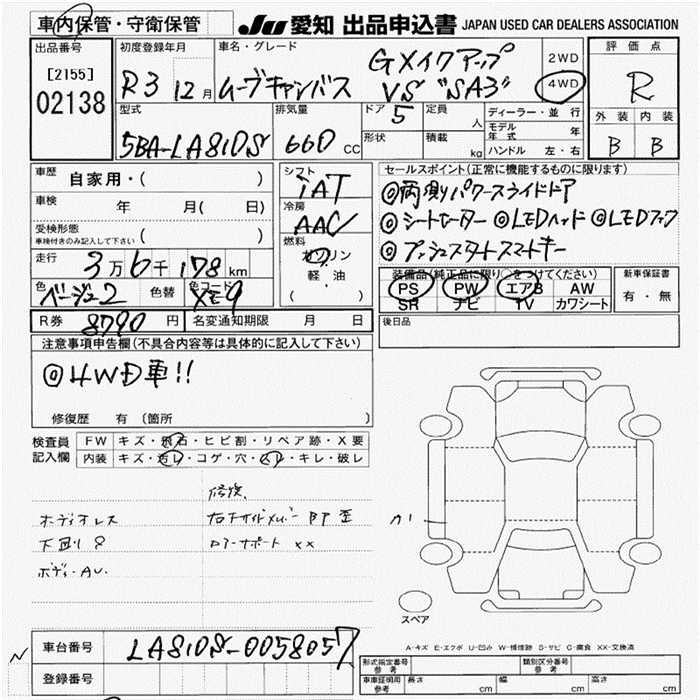 車内保管・守衛保管
JU 愛知 出品申込書 JAPAN USED CAR DEALERS ASSOCIATION
出品番号
[2155]
02138
初度登録年月
R3 12月
車名・グレード
ムーブキャンバス
Gメイクアップ
VS "SAⅢ"
2WD
4WD
評価点
R
外装 内装
B B
型式
5BA-LA810S
排気量
660 CC
ドア 5
形状
定員 人
積載 kg
ディーラー・並行
モデル年式 年
ハンドル 左・右
車歴 自家用・( )
車検 年 月( 日)
受検形態
車検付きのみ記入して下さい ( )
走行 3万6千178km
色 ベージュ2
色替
色コード
R券 8790円
名変通知期限 月 日
シフト
IAT
冷房
AAC
燃料
ガソリン
軽・油
( )
セールスポイント(正常に機能するものに限ります)
◎両側パワースライドドア
◎シートヒーター ◎LEDヘッド ◎LEDフォグ
◎プッシュスタートスマートキー
装備品(純正品に限り○をつけてください)
PS PW エアB AW
SR ナビ TV カワシート
新車保証書
有・無
後日品
注意事項申告欄(不具合内容等は具体的に記入して下さい)
◎4WD車!!
修復歴 有 (箇所 )
検査員
記入欄
FW キズ・飛石・ヒビ割・リペア跡・X要
内装 キズ・汚レ・コゲ・穴・スレ・キレ・破レ
修復
ボディオレス
下廻り
ボディ・AU.
スペア
A-キズ E-エクボ U-凹み W-補修跡 S-サビ C-腐食 XX-交換済
車台番号 LA810S-0058057
登録番号
N
形式指定番号
参考
類別区分番号
参考
車車証明用
参考
長さ cm
幅 cm
高さ cm